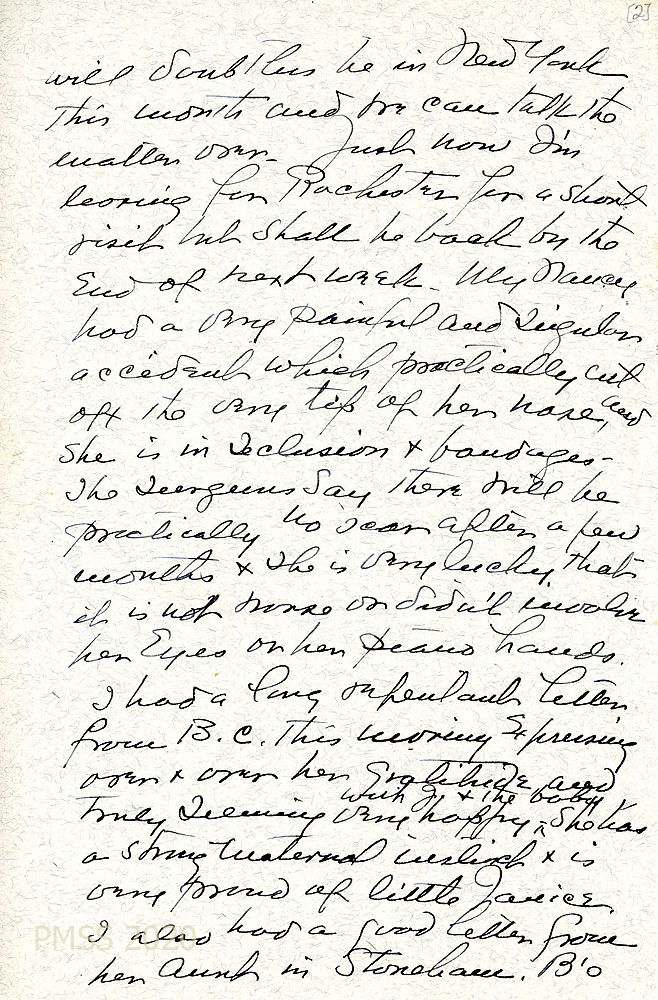 [2]
will doubtless be in New York
this month and we can talk the
matter over. Just now I'm
leaving for Rochester for a short
visit but shall be back by the
end of next week. My Nancy
had a very painful and singular
accident which practically cut
off the very tip of her nose, and
she is in seclusion & bandages.
The surgeons say there will be
practically no scar after a few
months & she is very lucky that
it is not worse or didn't involve
her eyes or her piano hands.
I had a long repentant letter
from B.C. this morning expressing
over & over her gratitude and
truly seeming very happy with J. & the baby. She has
a strong maternal instinct & is
very proud of little Janice.
I also had a good letter from
her Aunt in Stoneham. B's
PMSS 2020